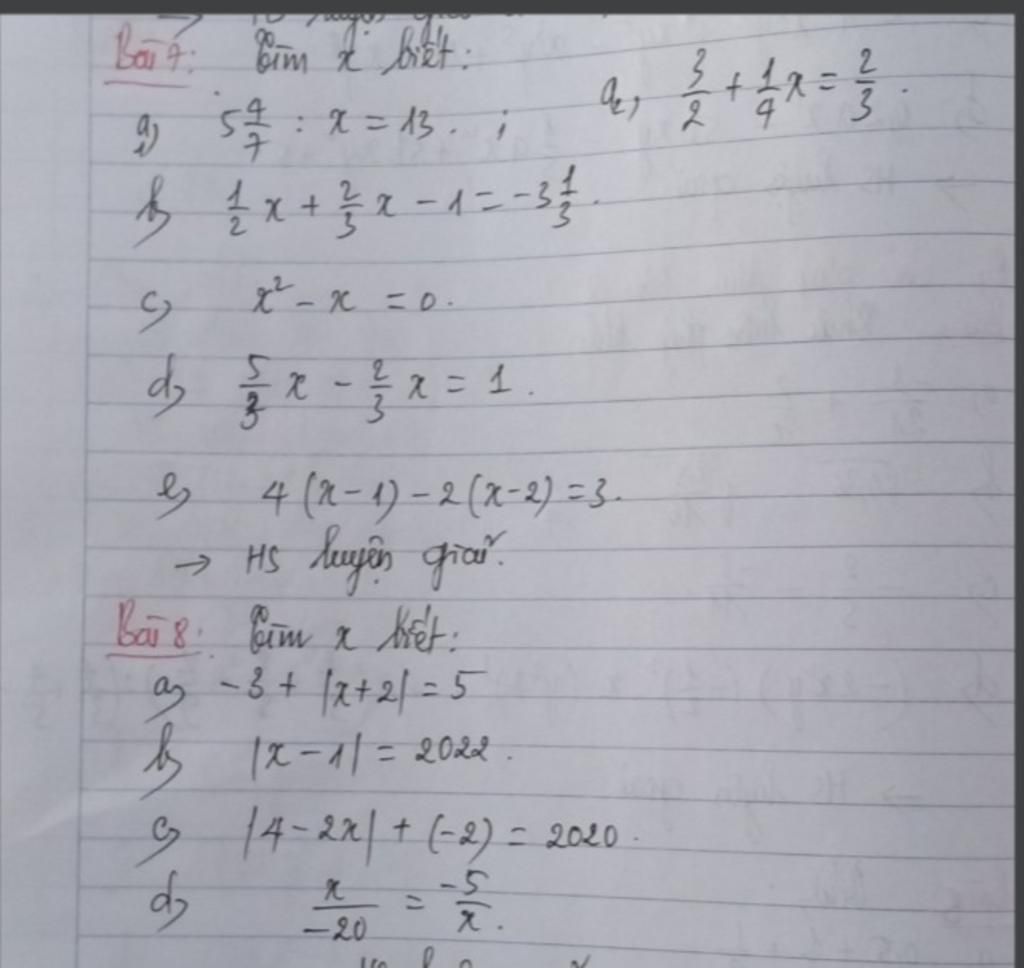 Bài 7: Tìm x biết:
a₁) 5 4/7 : x = 13. ; a₂) 3/2 + 1/4 x = 2/3.
b) 1/2 x + 2/3 x - 1 = -3 1/3.
c) x² - x = 0.
d) 5/3 x - 2/3 x = 1.
e) 4(x-1) - 2(x-2) = 3.
→ HS luyện giải.
Bài 8: Tìm x biết:
a) -3 + |x+2| = 5
b) |x-1| = 2022.
c) |4-2x| + (-2) = 2020.
d) x/-20 = -5/x.